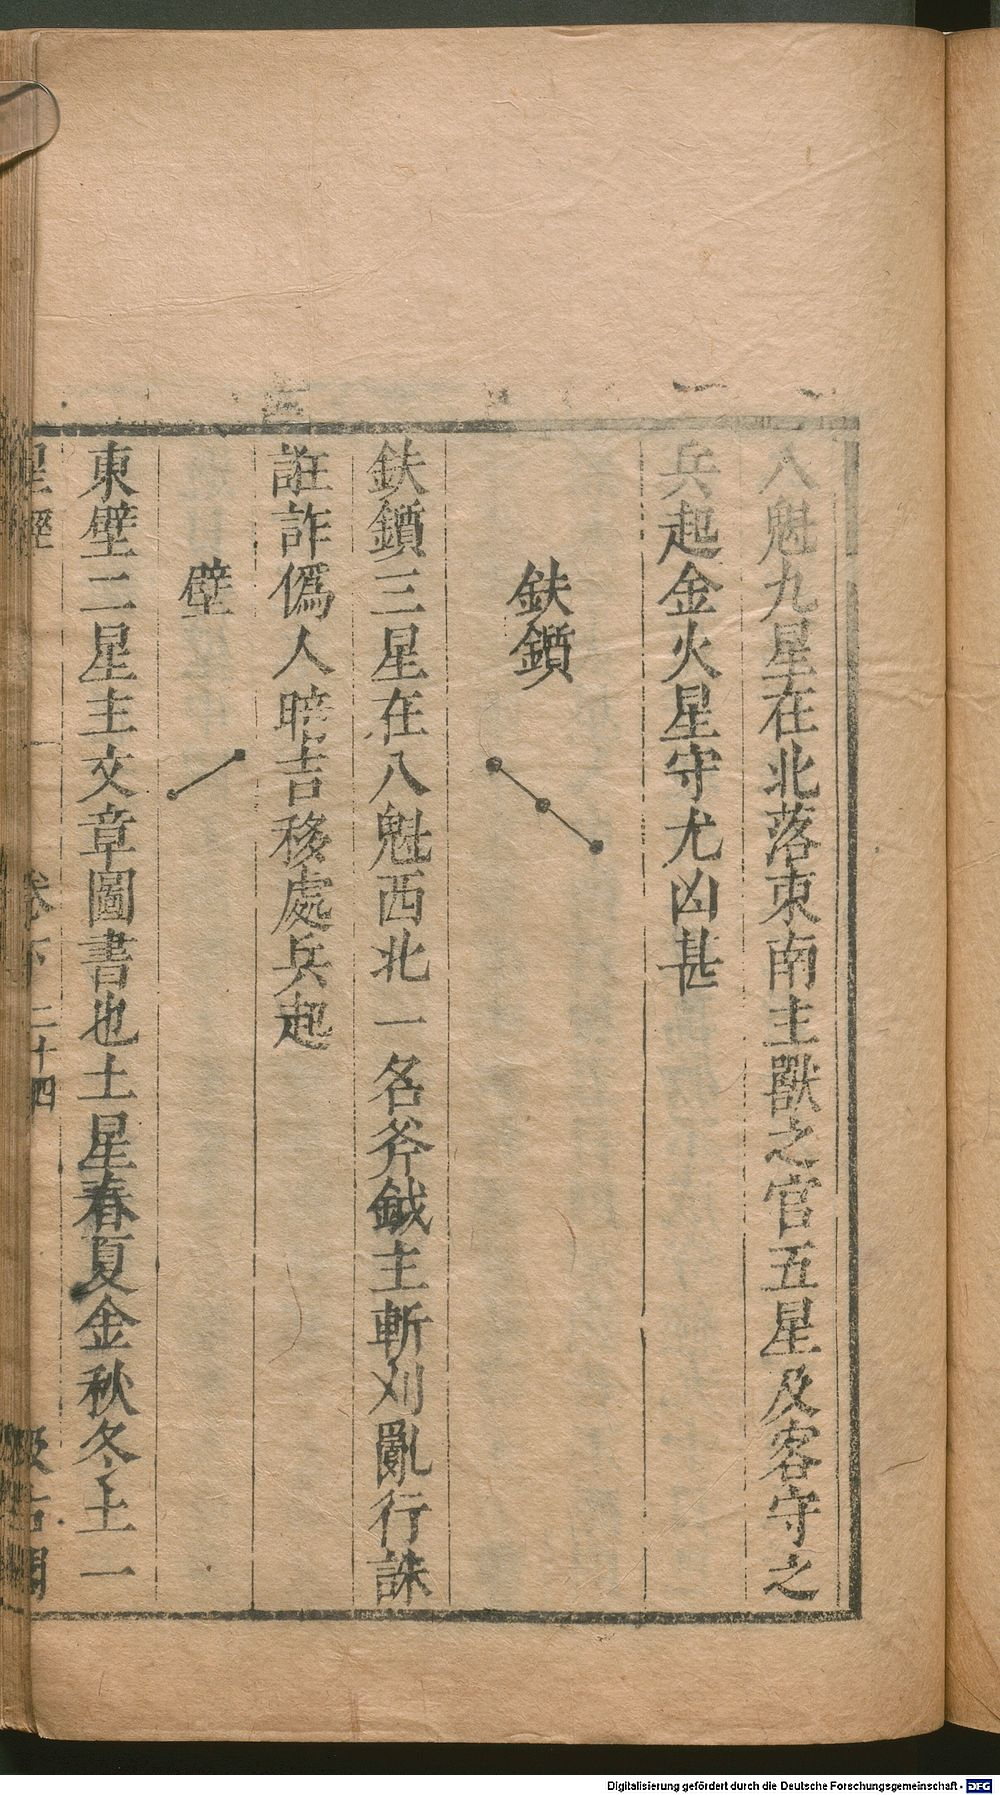 八魁九星在北落東南主獸之官五星及客守之
兵起金火星守尤凶甚
鈇鑕
鈇鑕三星在八魁西北一名斧鉞主斬刈亂行誅
誑詐僞人暗吉移處兵起
壁
東壁二星主文章圖書也土星春夏金秋冬土一
星經 卷下 二十四 汲古閣
Digitalisierung gefördert durch die Deutsche Forschungsgemeinschaft - DFG